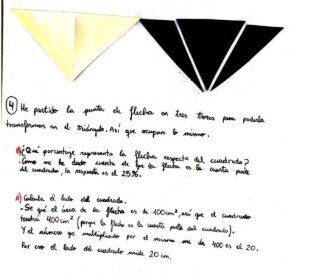 ④ He partido la punta de flecha en tres trozos para poderla
transformar en el triángulo. Así que ocupan lo mismo.
B) ¿Qué porcentaje representa la flecha respecto del cuadrado?
- Como me he dado cuenta de que la flecha es la cuarta parte
del cuadrado, la respuesta es el 25%.
A) Calcula el lado del cuadrado.
- Se que el área de la flecha es de 100cm², así que el cuadrado
tendrá 400cm² (porque la flecha es la cuarta parte del cuadrado).
Y el número que multiplicado por el mismo me da 400 es el 20.
Por eso el lado del cuadrado mide 20 cm.